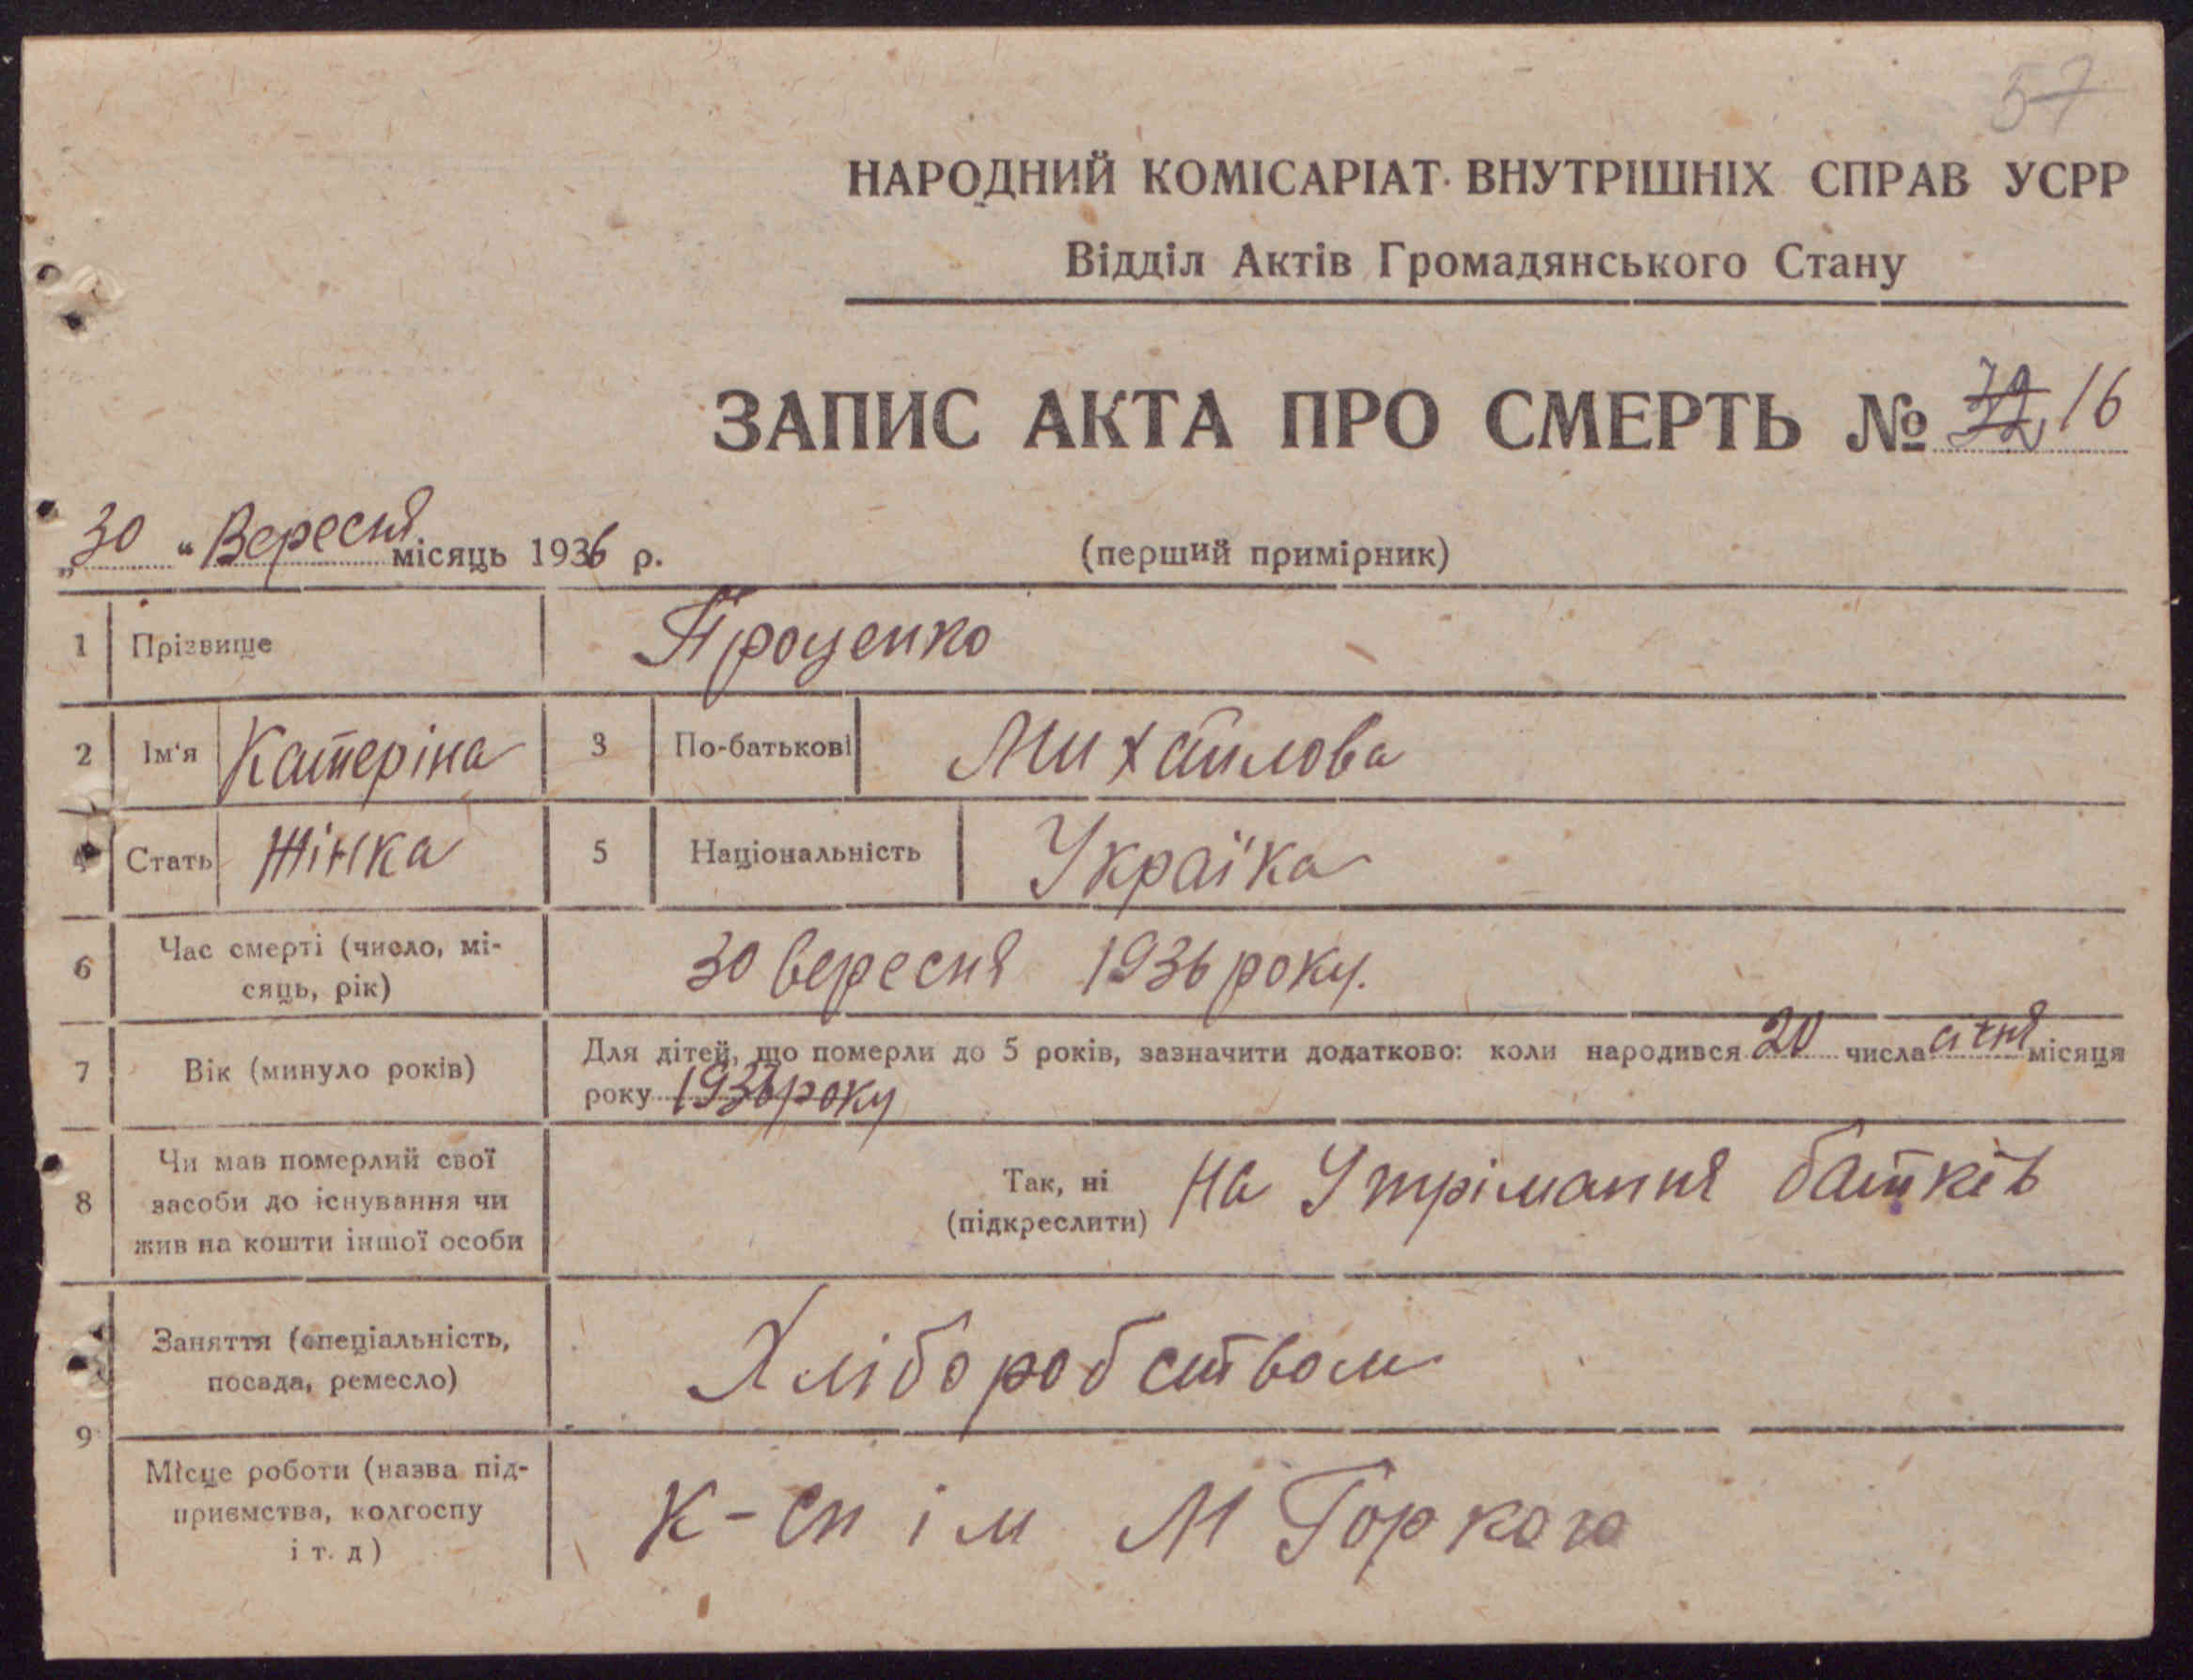 57
НАРОДНИЙ КОМІСАРІАТ ВНУТРІШНІХ СПРАВ УСРР
Відділ Актів Громадянського Стану
ЗАПИС АКТА ПРО СМЕРТЬ № 16
„30“ Вересня місяць 1936 р.
(перший примірник)
1 Прізвище Проценко
2 Ім'я Катеріна 3 По-батькові Михайлова
4 Стать Жінка 5 Національність Україка
6 Час смерті (число, мі-
сяць, рік) 30 вересня 1936 року.
7 Вік (минуло років) Для дітей, що померли до 5 років, зазначити додатково: коли народився 20 числа січня місяця
року 1936 року
8 Чи мав померлий свої
засоби до існування чи
жив на кошти іншої особи
Так, ні
(підкреслити) На Утрімання батків
9 Заняття (спеціальність,
посада, ремесло) Хлiборобством
Місце роботи (назва під-
приємства, колгоспу
і т. д) К-сп ім М Горкого